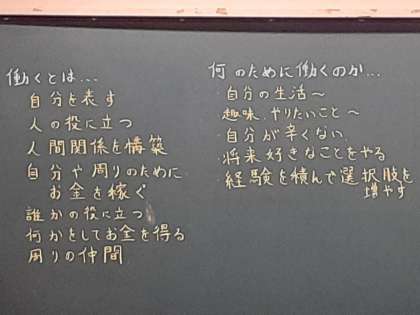 働くとは....
自分を表す
人の役に立つ
人間関係を構築
自分や周りのために
お金を稼ぐ
誰かの役に立つ
何かをしてお金を得る
周りの仲間
何のために働くのか...
・自分の生活〜
趣味、やりたいこと〜
・自分が辛くない
・将来好きなことをやる
・経験を積んで選択肢を
増やす